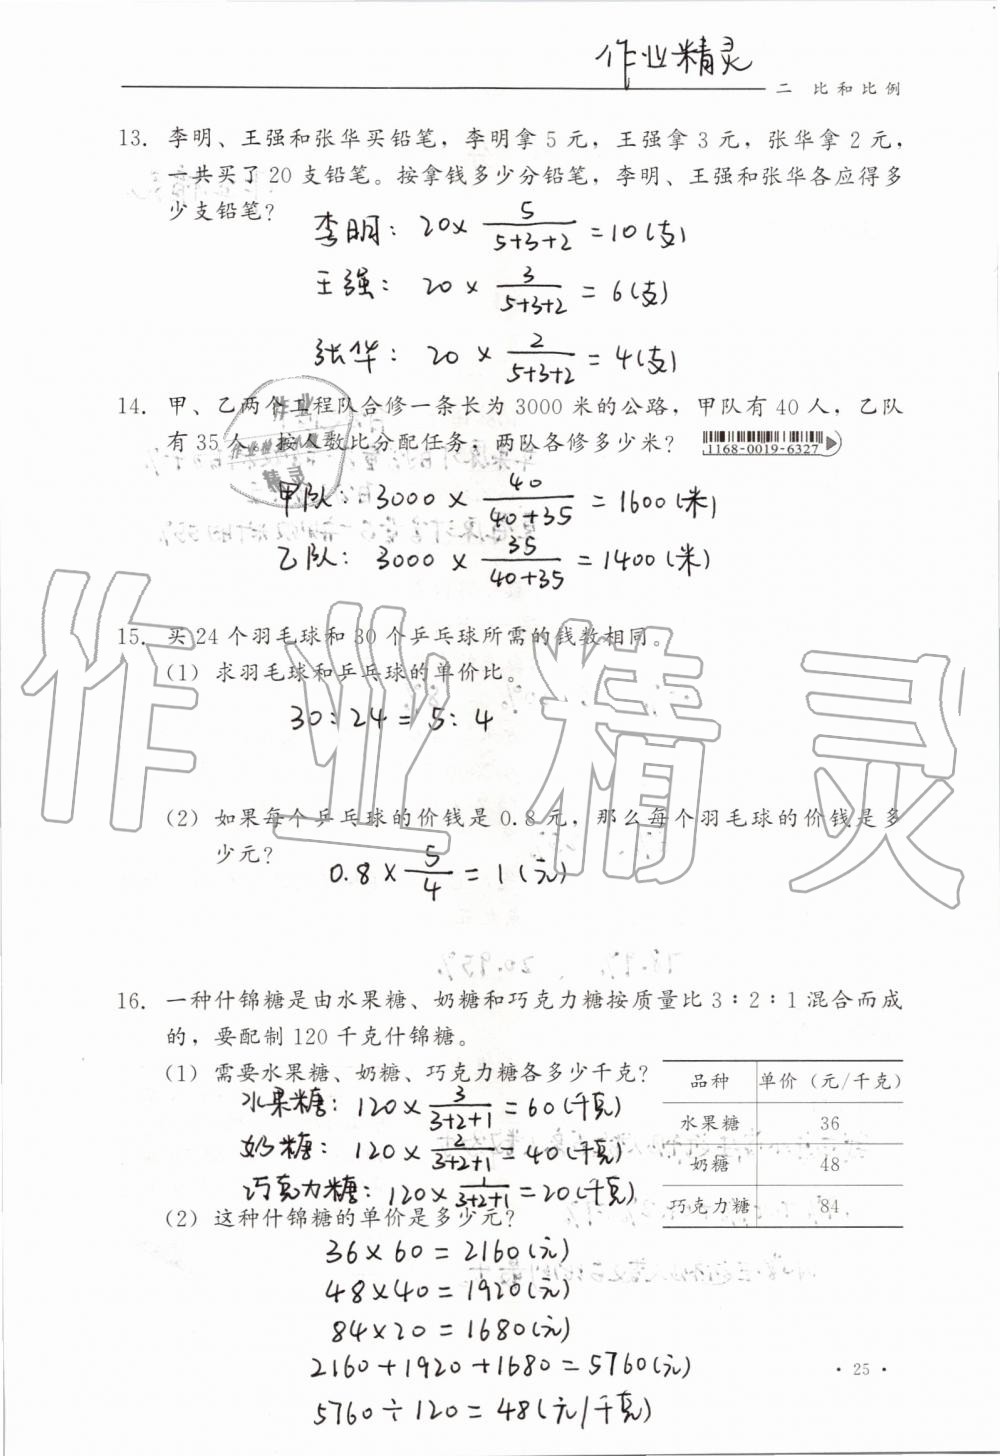 作业精灵
二 比和比例
13. 李明、王强和张华买铅笔，李明拿 5 元，王强拿 3 元，张华拿 2 元，
一共买了 20 支铅笔。按拿钱多少分铅笔，李明、王强和张华各应得多
少支铅笔？
李明：20×5/(5+3+2)=10(支)
王强：20×3/(5+3+2)=6(支)
张华：20×2/(5+3+2)=4(支)
14. 甲、乙两个工程队合修一条长为 3000 米的公路，甲队有 40 人，乙队
有 35 人。按人数比分配任务，两队各修多少米？
1168-0019-6327
甲队：3000×40/(40+35)=1600(米)
乙队：3000×35/(40+35)=1400(米)
作业精灵
15. 买 24 个羽毛球和 30 个乒乓球所需的钱数相同。
(1) 求羽毛球和乒乓球的单价比。
30:24=5:4
(2) 如果每个乒乓球的价钱是 0.8 元，那么每个羽毛球的价钱是多
少元？
0.8×5/4=1(元)
16. 一种什锦糖是由水果糖、奶糖和巧克力糖按质量比 3∶2∶1 混合而成
的，要配制 120 千克什锦糖。
(1) 需要水果糖、奶糖、巧克力糖各多少千克？
水果糖：120×3/(3+2+1)=60(千克)
奶糖：120×2/(3+2+1)=40(千克)
巧克力糖：120×1/(3+2+1)=20(千克)
品种 单价（元/千克）
水果糖 36
奶糖 48
巧克力糖 84
(2) 这种什锦糖的单价是多少元？
36×60=2160(元)
48×40=1920(元)
84×20=1680(元)
2160+1920+1680=5760(元)
5760÷120=48(元/千克)
· 25 ·